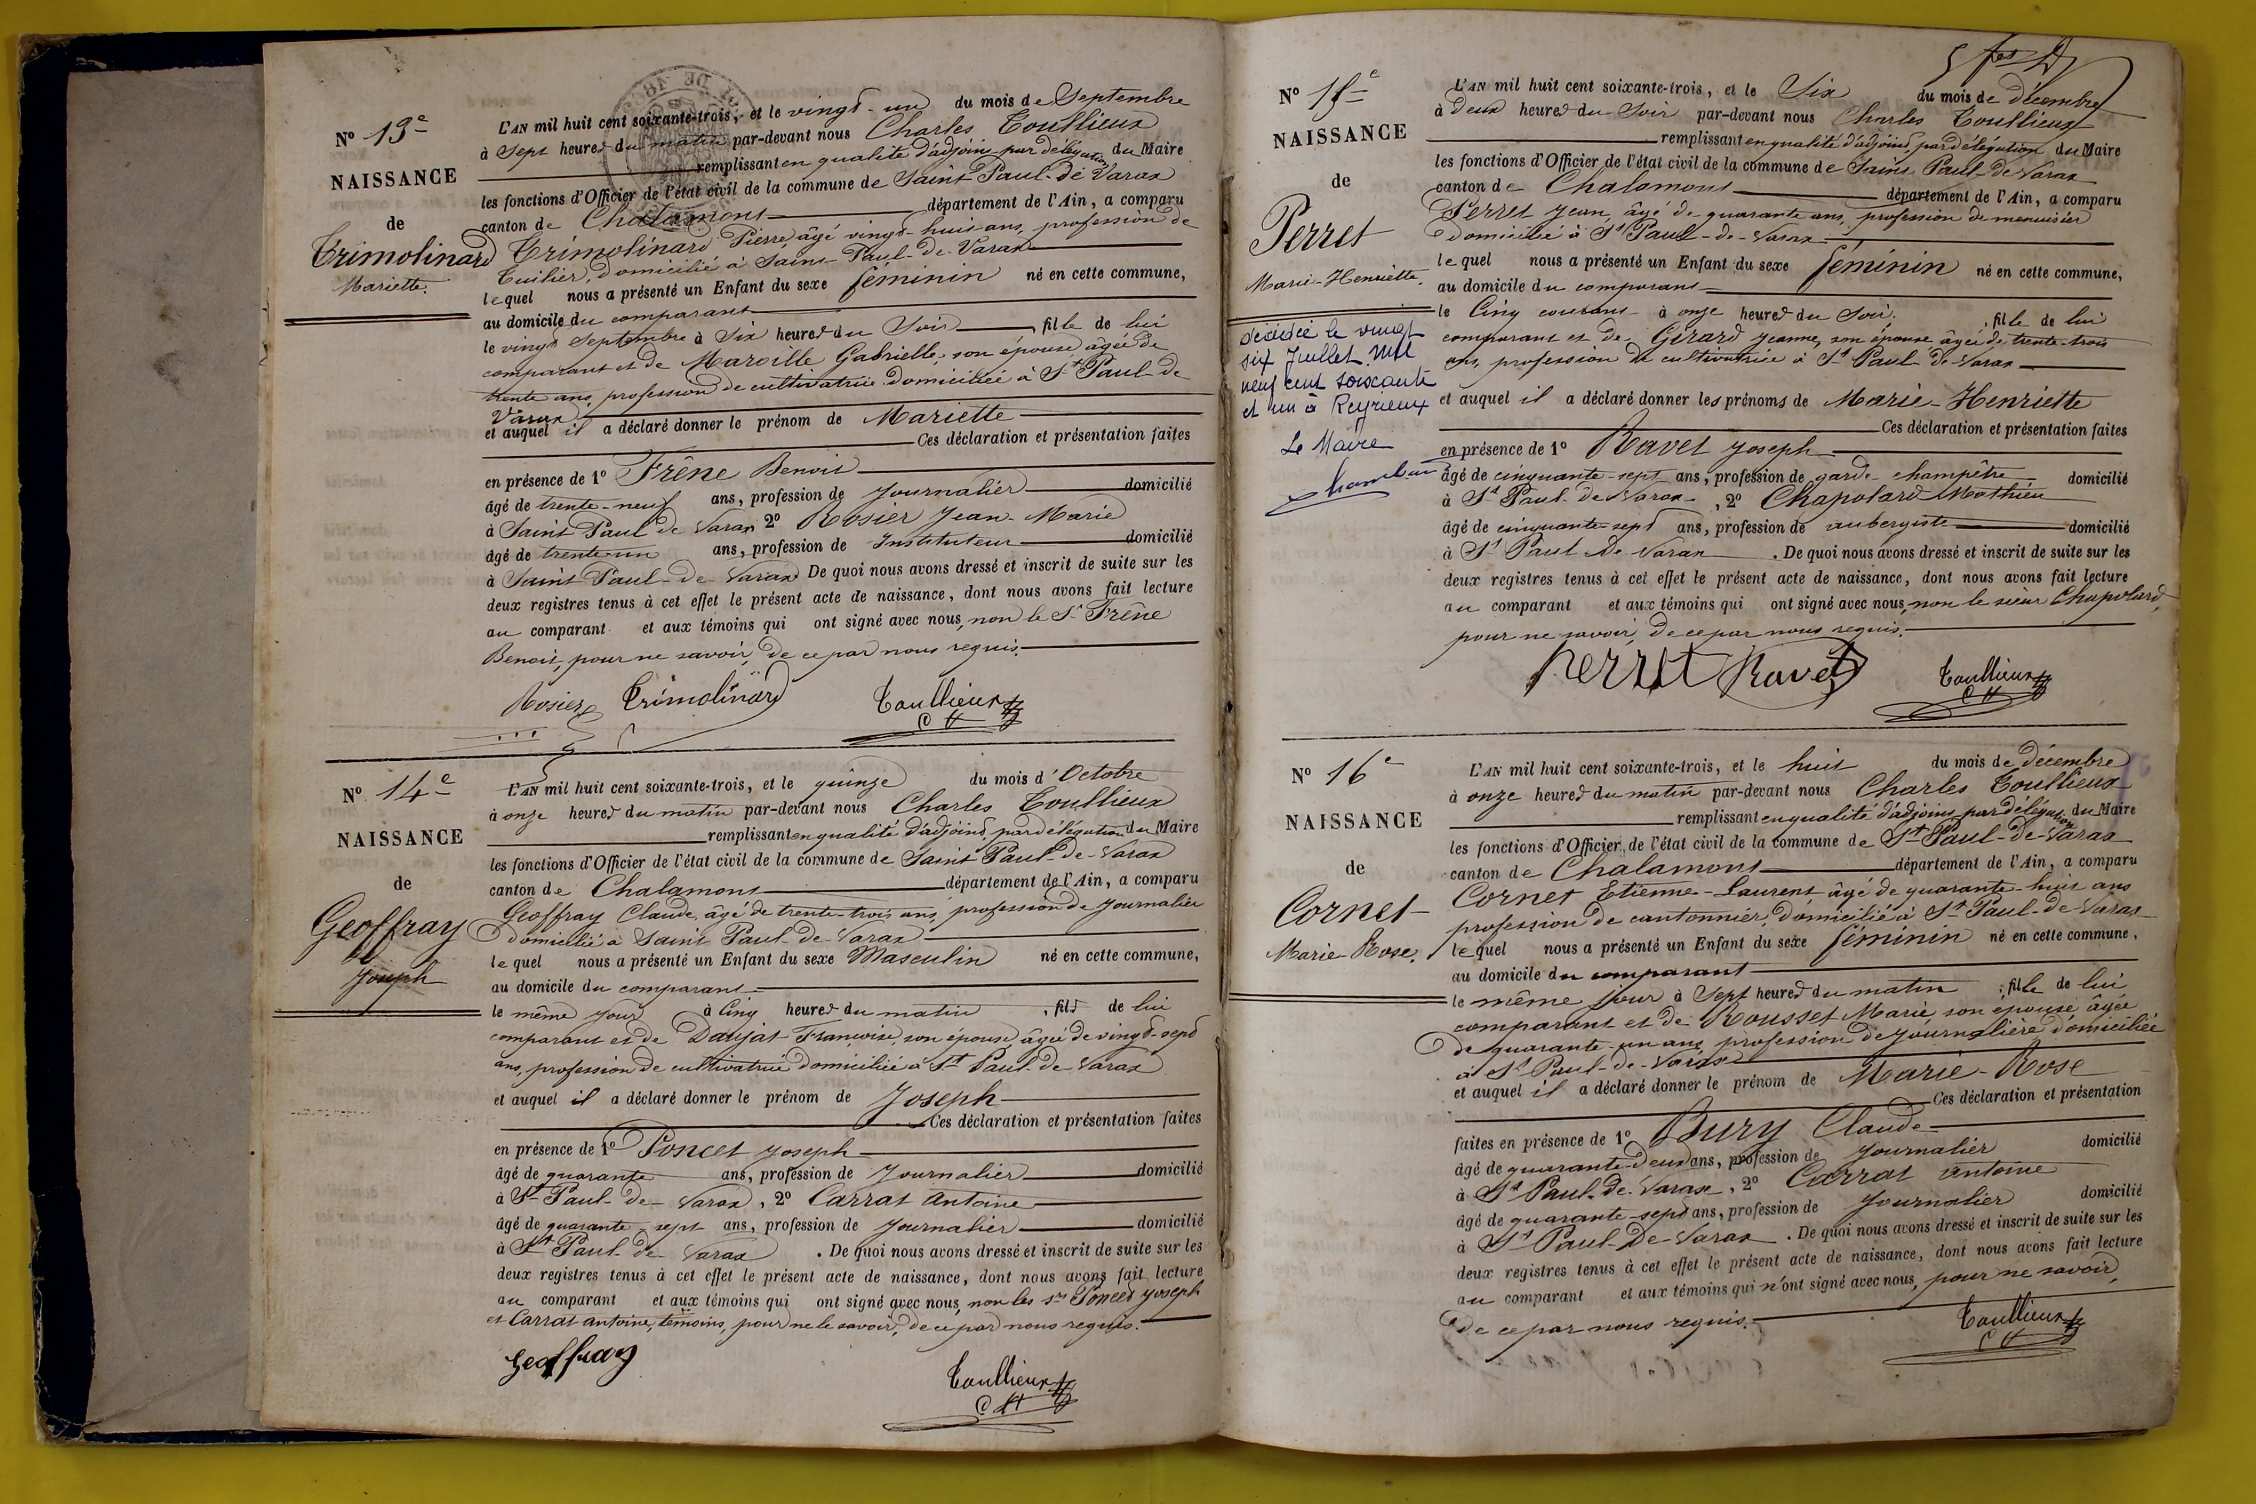 N° 13e
NAISSANCE
de
Trimolinard
Mariette.
L'AN mil huit cent soixante-trois, et le vingt-un du mois de Septembre
à Sept heures du matin par-devant nous Charles Toullieux
remplissant en qualité d'adjoint par délégation du Maire
les fonctions d'Officier de l'état civil de la commune de Saint Paul-de Varax
canton de Chalamont département de l'Ain, a comparu
Trimolinard Pierre, âgé vingt-huit ans, profession de
Tuilier, domicilié à Saint-Paul-de-Varax
lequel nous a présenté un Enfant du sexe féminin né en cette commune,
au domicile du comparant
le vingt Septembre à Six heures du Soir, fille de lui
comparant et de Maroille Gabrielle, son épouse âgée de
trente ans, profession de cultivatrice domiciliée à St Paul-de
Varax
et auquel il a déclaré donner le prénom de Mariette
Ces déclaration et présentation faites
en présence de 1° Frêne Benoit
âgé de trente-neuf ans, profession de Journalier domicilié
à Saint Paul de Varax 2° Rosier Jean-Marie
âgé de trente-un ans, profession de Instituteur domicilié
à Saint Paul-de-Varax De quoi nous avons dressé et inscrit de suite sur les
deux registres tenus à cet effet le présent acte de naissance, dont nous avons fait lecture
au comparant et aux témoins qui ont signé avec nous, non le Sr Frêne
Benoit, pour ne savoir, de ce par nous requis.
Rosier Trimolinard Toullieux
N° 14e
NAISSANCE
de
Geoffray
Joseph
L'AN mil huit cent soixante-trois, et le quinze du mois d'Octobre
à onze heures du matin par-devant nous Charles Toullieux
remplissant en qualité d'adjoint par délégation du Maire
les fonctions d'Officier de l'état civil de la commune de Saint Paul-de-Varax
canton de Chalamont département de l'Ain, a comparu
Geoffray Claude, âgé de trente-trois ans, profession de Journalier
domicilié à Saint Paul-de-Varax
lequel nous a présenté un Enfant du sexe Masculin né en cette commune,
au domicile du comparant
le même jour à Cinq heures du matin, fils de lui
comparant et de Daujat Françoise, son épouse âgée de vingt-sept
ans, profession de cultivatrice domiciliée à St Paul-de Varax
et auquel il a déclaré donner le prénom de Joseph
Ces déclaration et présentation faites
en présence de 1° Poncet Joseph
âgé de quarante ans, profession de Journalier domicilié
à St Paul-de-Varax, 2° Carrat Antoine
âgé de quarante-sept ans, profession de Journalier domicilié
à St Paul-de-Varax. De quoi nous avons dressé et inscrit de suite sur les
deux registres tenus à cet effet le présent acte de naissance, dont nous avons fait lecture
au comparant et aux témoins qui ont signé avec nous, non les srs Poncet Joseph
et Carrat Antoine, témoins, pour ne le savoir, de ce par nous requis.
Geoffray Toullieux
N° 15e
NAISSANCE
de
Perret
Marie-Henriette.
décédée le vingt
six Juillet mil
neuf cent soixante
et un à Reyrieux
Le Maire
L'AN mil huit cent soixante-trois, et le Six du mois de décembre
à deux heures du Soir par-devant nous Charles Toullieux
remplissant en qualité d'adjoint par délégation du Maire
les fonctions d'Officier de l'état civil de la commune de Saint Paul-de-Varax
canton de Chalamont département de l'Ain, a comparu
Perret Jean, âgé de quarante ans, profession de menuisier
domicilié à St Paul-de-Varax
lequel nous a présenté un Enfant du sexe féminin né en cette commune,
au domicile du comparant
le Cinq courant à onze heures du Soir, fille de lui
comparant et de Girard Jeanne, son épouse âgée de trente-trois
ans, profession de cultivatrice à St Paul-de-Varax
et auquel il a déclaré donner les prénoms de Marie-Henriette
Ces déclaration et présentation faites
en présence de 1° Ravet Joseph
âgé de cinquante-sept ans, profession de garde champêtre domicilié
à St Paul-de Varax, 2° Chapolard Mathieu
âgé de cinquante-sept ans, profession de aubergiste domicilié
à St Paul de Varax. De quoi nous avons dressé et inscrit de suite sur les
deux registres tenus à cet effet le présent acte de naissance, dont nous avons fait lecture
au comparant et aux témoins qui ont signé avec nous, non le sieur Chapolard,
pour ne savoir, de ce par nous requis.
Perret Ravet Toullieux
N° 16e
NAISSANCE
de
Cornet
Marie-Rose.
L'AN mil huit cent soixante-trois, et le huit du mois de décembre
à onze heures du matin par-devant nous Charles Toullieux
remplissant en qualité d'adjoint par délégation du Maire
les fonctions d'Officier de l'état civil de la commune de St Paul-de-Varax
canton de Chalamont département de l'Ain, a comparu
Cornet Etienne-Laurent âgé de quarante-huit ans
profession de cantonnier, domicilié à St Paul-de-Varax
lequel nous a présenté un Enfant du sexe féminin né en cette commune,
au domicile du comparant
le même jour à Sept heures du matin, fille de lui
comparant et de Rousset Marie, son épouse âgée
de quarante-un ans, profession de journalière domiciliée
à St Paul-de-Varax
et auquel il a déclaré donner le prénom de Marie-Rose
Ces déclaration et présentation
faites en présence de 1° Bury Claude
âgé de quarante-deux ans, profession de Journalier domicilié
à St Paul-de-Varax, 2° Carrat Antoine
âgé de quarante-sept ans, profession de Journalier domicilié
à St Paul-de-Varax. De quoi nous avons dressé et inscrit de suite sur les
deux registres tenus à cet effet le présent acte de naissance, dont nous avons fait lecture
au comparant et aux témoins qui n'ont signé avec nous, pour ne savoir,
de ce par nous requis.
Toullieux